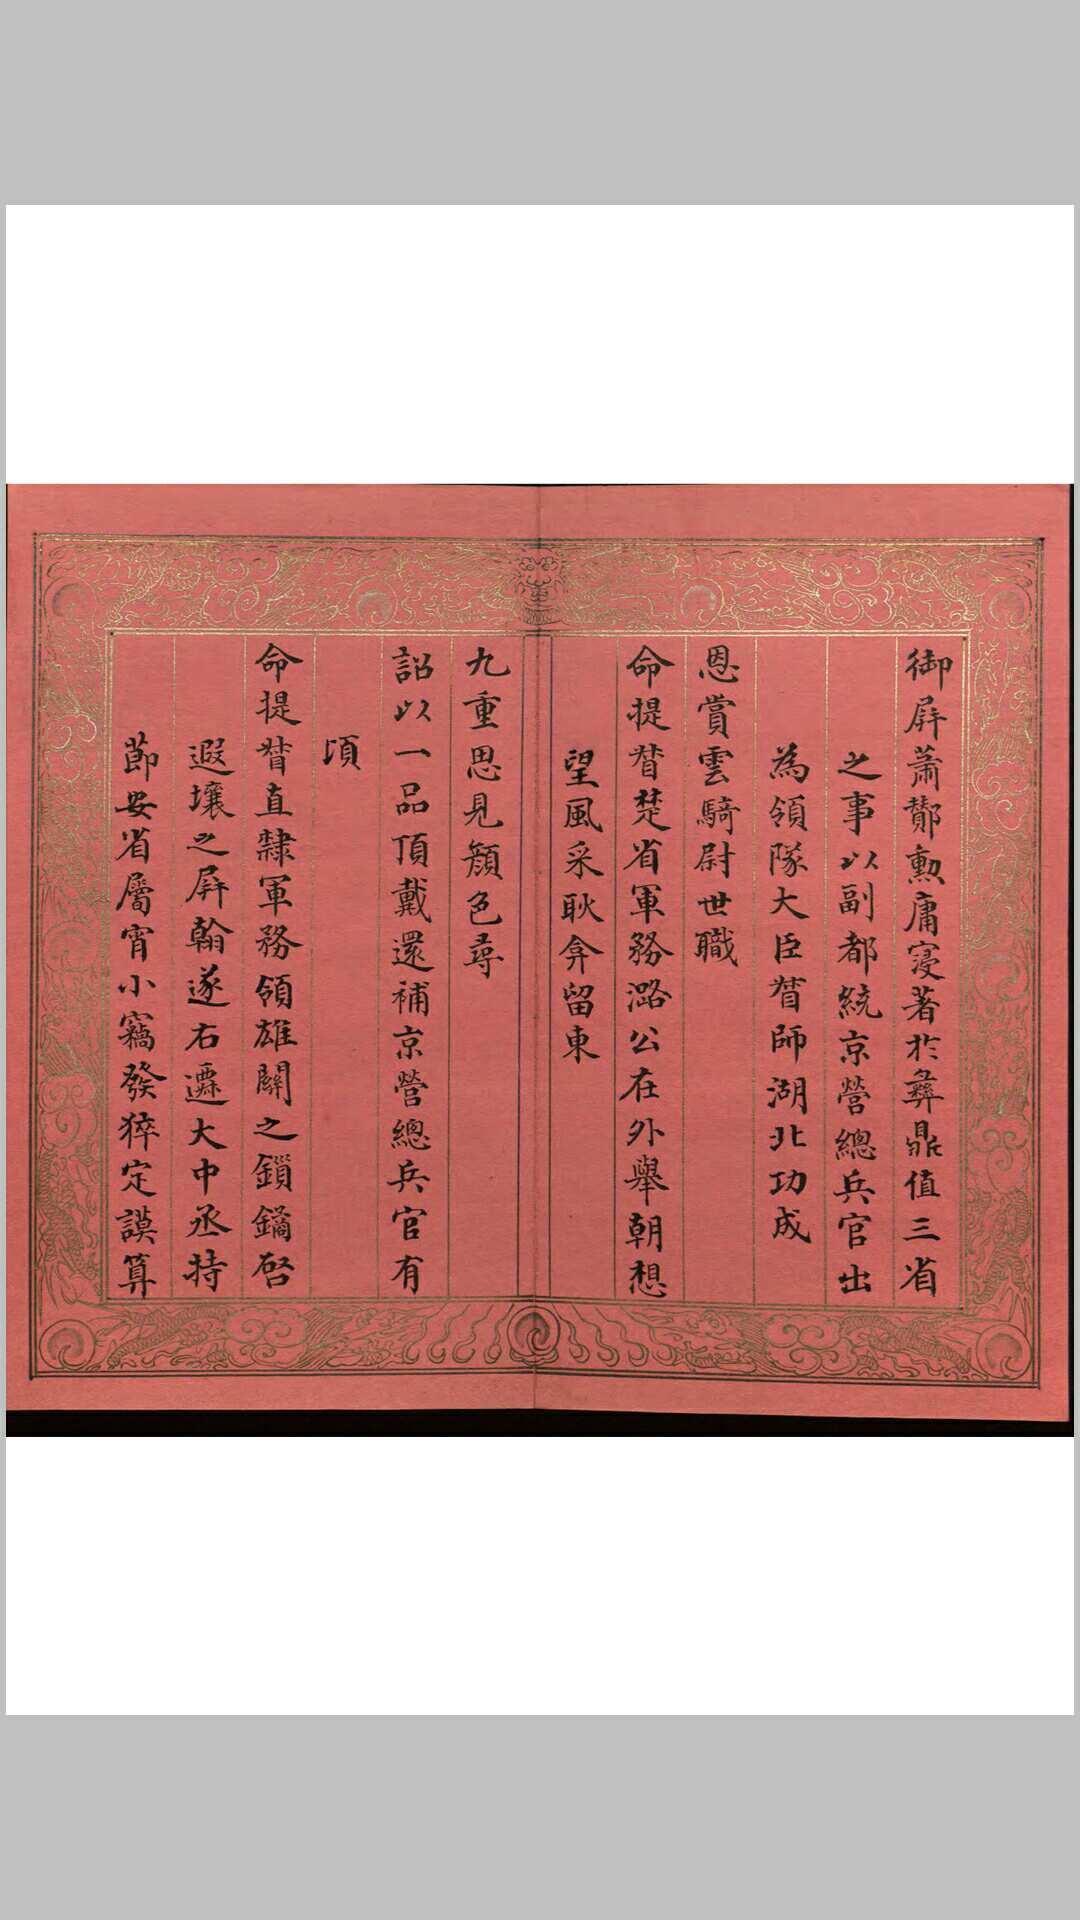 御屏蕭酇勲庸寖著於彝鼎值三省
之事以副都統京營總兵官出
為領隊大臣督師湖北功成
恩賞雲騎尉世職
命提督楚省軍務潞公在外舉朝想
望風采耿弇留東
九重思見顔色尋
詔以一品頂戴還補京營總兵官有
頃
命提督直隸軍務領雄關之鎖鑰啓
遐壤之屏翰遂右遷大中丞持
節安省屬宵小竊發猝定謨算